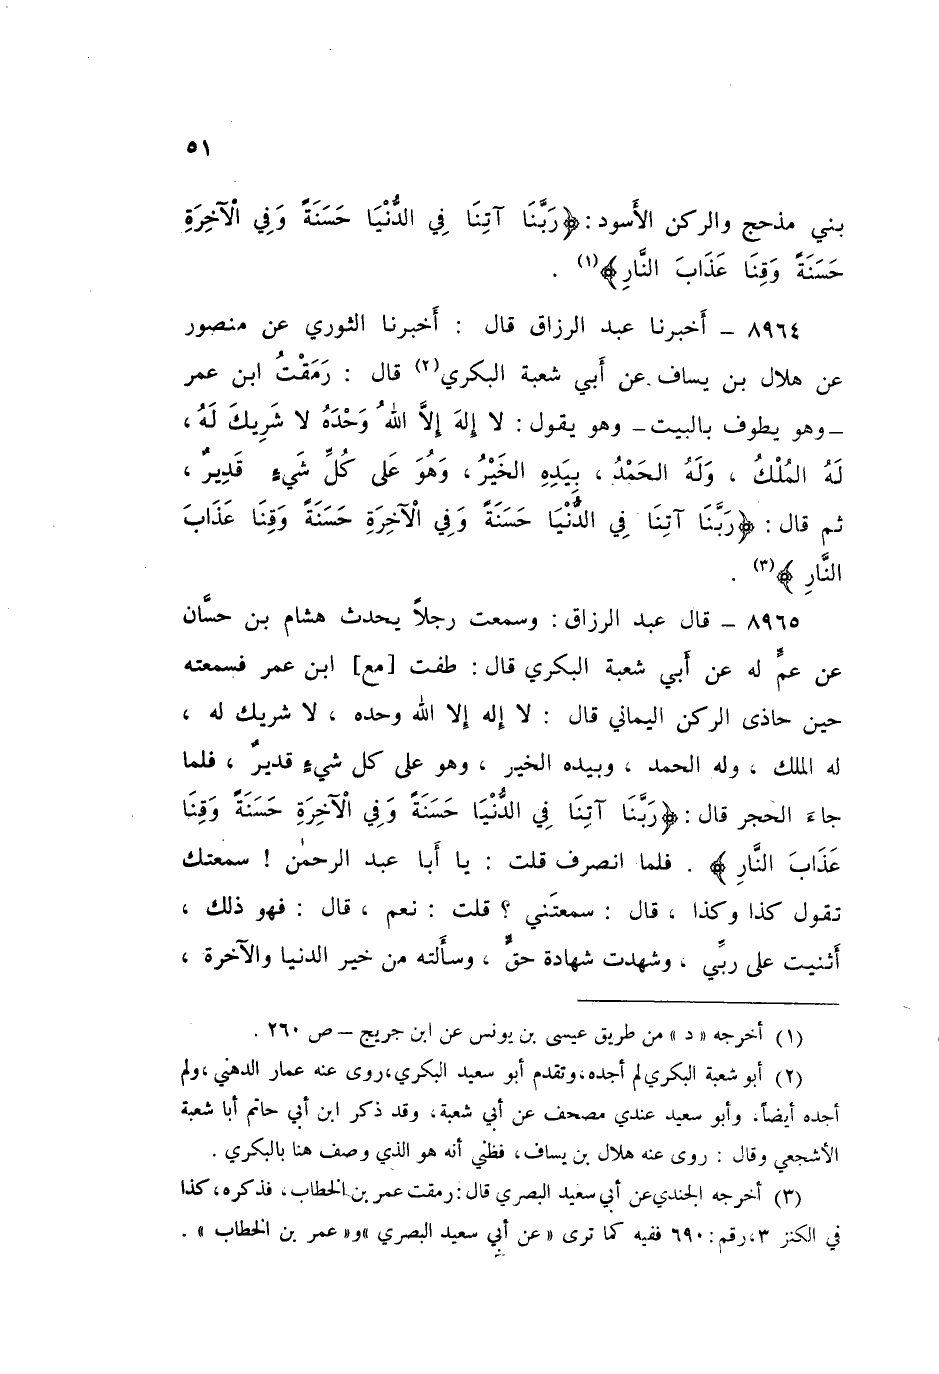 ٥١
بني مذحج والركن الأسود : ﴿ رَبَّنَا آتِنَا فِي الدُّنْيَا حَسَنَةً وَفِي الْآخِرَةِ
حَسَنَةً وَقِنَا عَذَابَ النَّارِ ﴾ (١) .
٨٩٦٤ – أخبرنا عبد الرزاق قال : أخبرنا الثوري عن منصور
عن هلال بن يساف عن أبي شعبة البكري (٢) قال : رَمَقْتُ ابن عمر
– وهو يطوف بالبيت – وهو يقول : لا إلهَ إلاَّ اللهُ وَحْدَهُ لا شَرِيكَ لَهُ ،
لَهُ المُلْكُ ، وَلَهُ الحَمْدُ ، بِيَدِهِ الخَيْرُ ، وَهُوَ عَلى كُلِّ شَيءٍ قَدِيرٌ ،
ثم قال : ﴿ رَبَّنَا آتِنَا فِي الدُّنْيَا حَسَنَةً وَفِي الْآخِرَةِ حَسَنَةً وَقِنَا عَذَابَ
النَّارِ ﴾ (٣) .
٨٩٦٥ – قال عبد الرزاق : وسمعت رجلاً يحدث هشام بن حسَّان
عن عمٍّ له عن أبي شعبة البكري قال : طفت [مع] ابن عمر فسمعته
حين حاذى الركن اليماني قال : لا إله إلا الله وحده ، لا شريك له ،
له الملك ، وله الحمد ، وبيده الخير ، وهو على كل شيءٍ قديرٌ ، فلما
جاءَ الحجر قال : ﴿ رَبَّنَا آتِنَا فِي الدُّنْيَا حَسَنَةً وَفِي الْآخِرَةِ حَسَنَةً وَقِنَا
عَذَابَ النَّارِ ﴾ . فلما انصرف قلت : يا أبا عبد الرحمٰن ! سمعتك
تقول كذا وكذا ، قال : سمعتَني ؟ قلت : نعم ، قال : فهو ذلك ،
أثنيت على ربِّي ، وشهدت شهادة حقٍّ ، وسأَلته من خير الدنيا والآخرة ،
(١) أخرجه « د » من طريق عيسى بن يونس عن ابن جريج – ص ٢٦٠ .
(٢) أبو شعبة البكري لم أجده ، وتقدم أبو سعيد البكري ، روى عنه عمار الدهني ، ولم
أجده أيضاً . وأبو سعيد عندي مصحف عن أبي شعبة ، وقد ذكر ابن أبي حاتم أبا شعبة
الأشجعي وقال : روى عنه هلال بن يساف ، فظني أنه هو الذي وصف هنا بالبكري .
(٣) أخرجه الجندي عن أبي سعيد البصري قال : رمقت عمر بن الخطاب ، فذكره ، كذا
في الكنز ٣ ، رقم : ٦٩٠ ففيه كما ترى « عن أبي سعيد البصري » و« عمر بن الخطاب » .